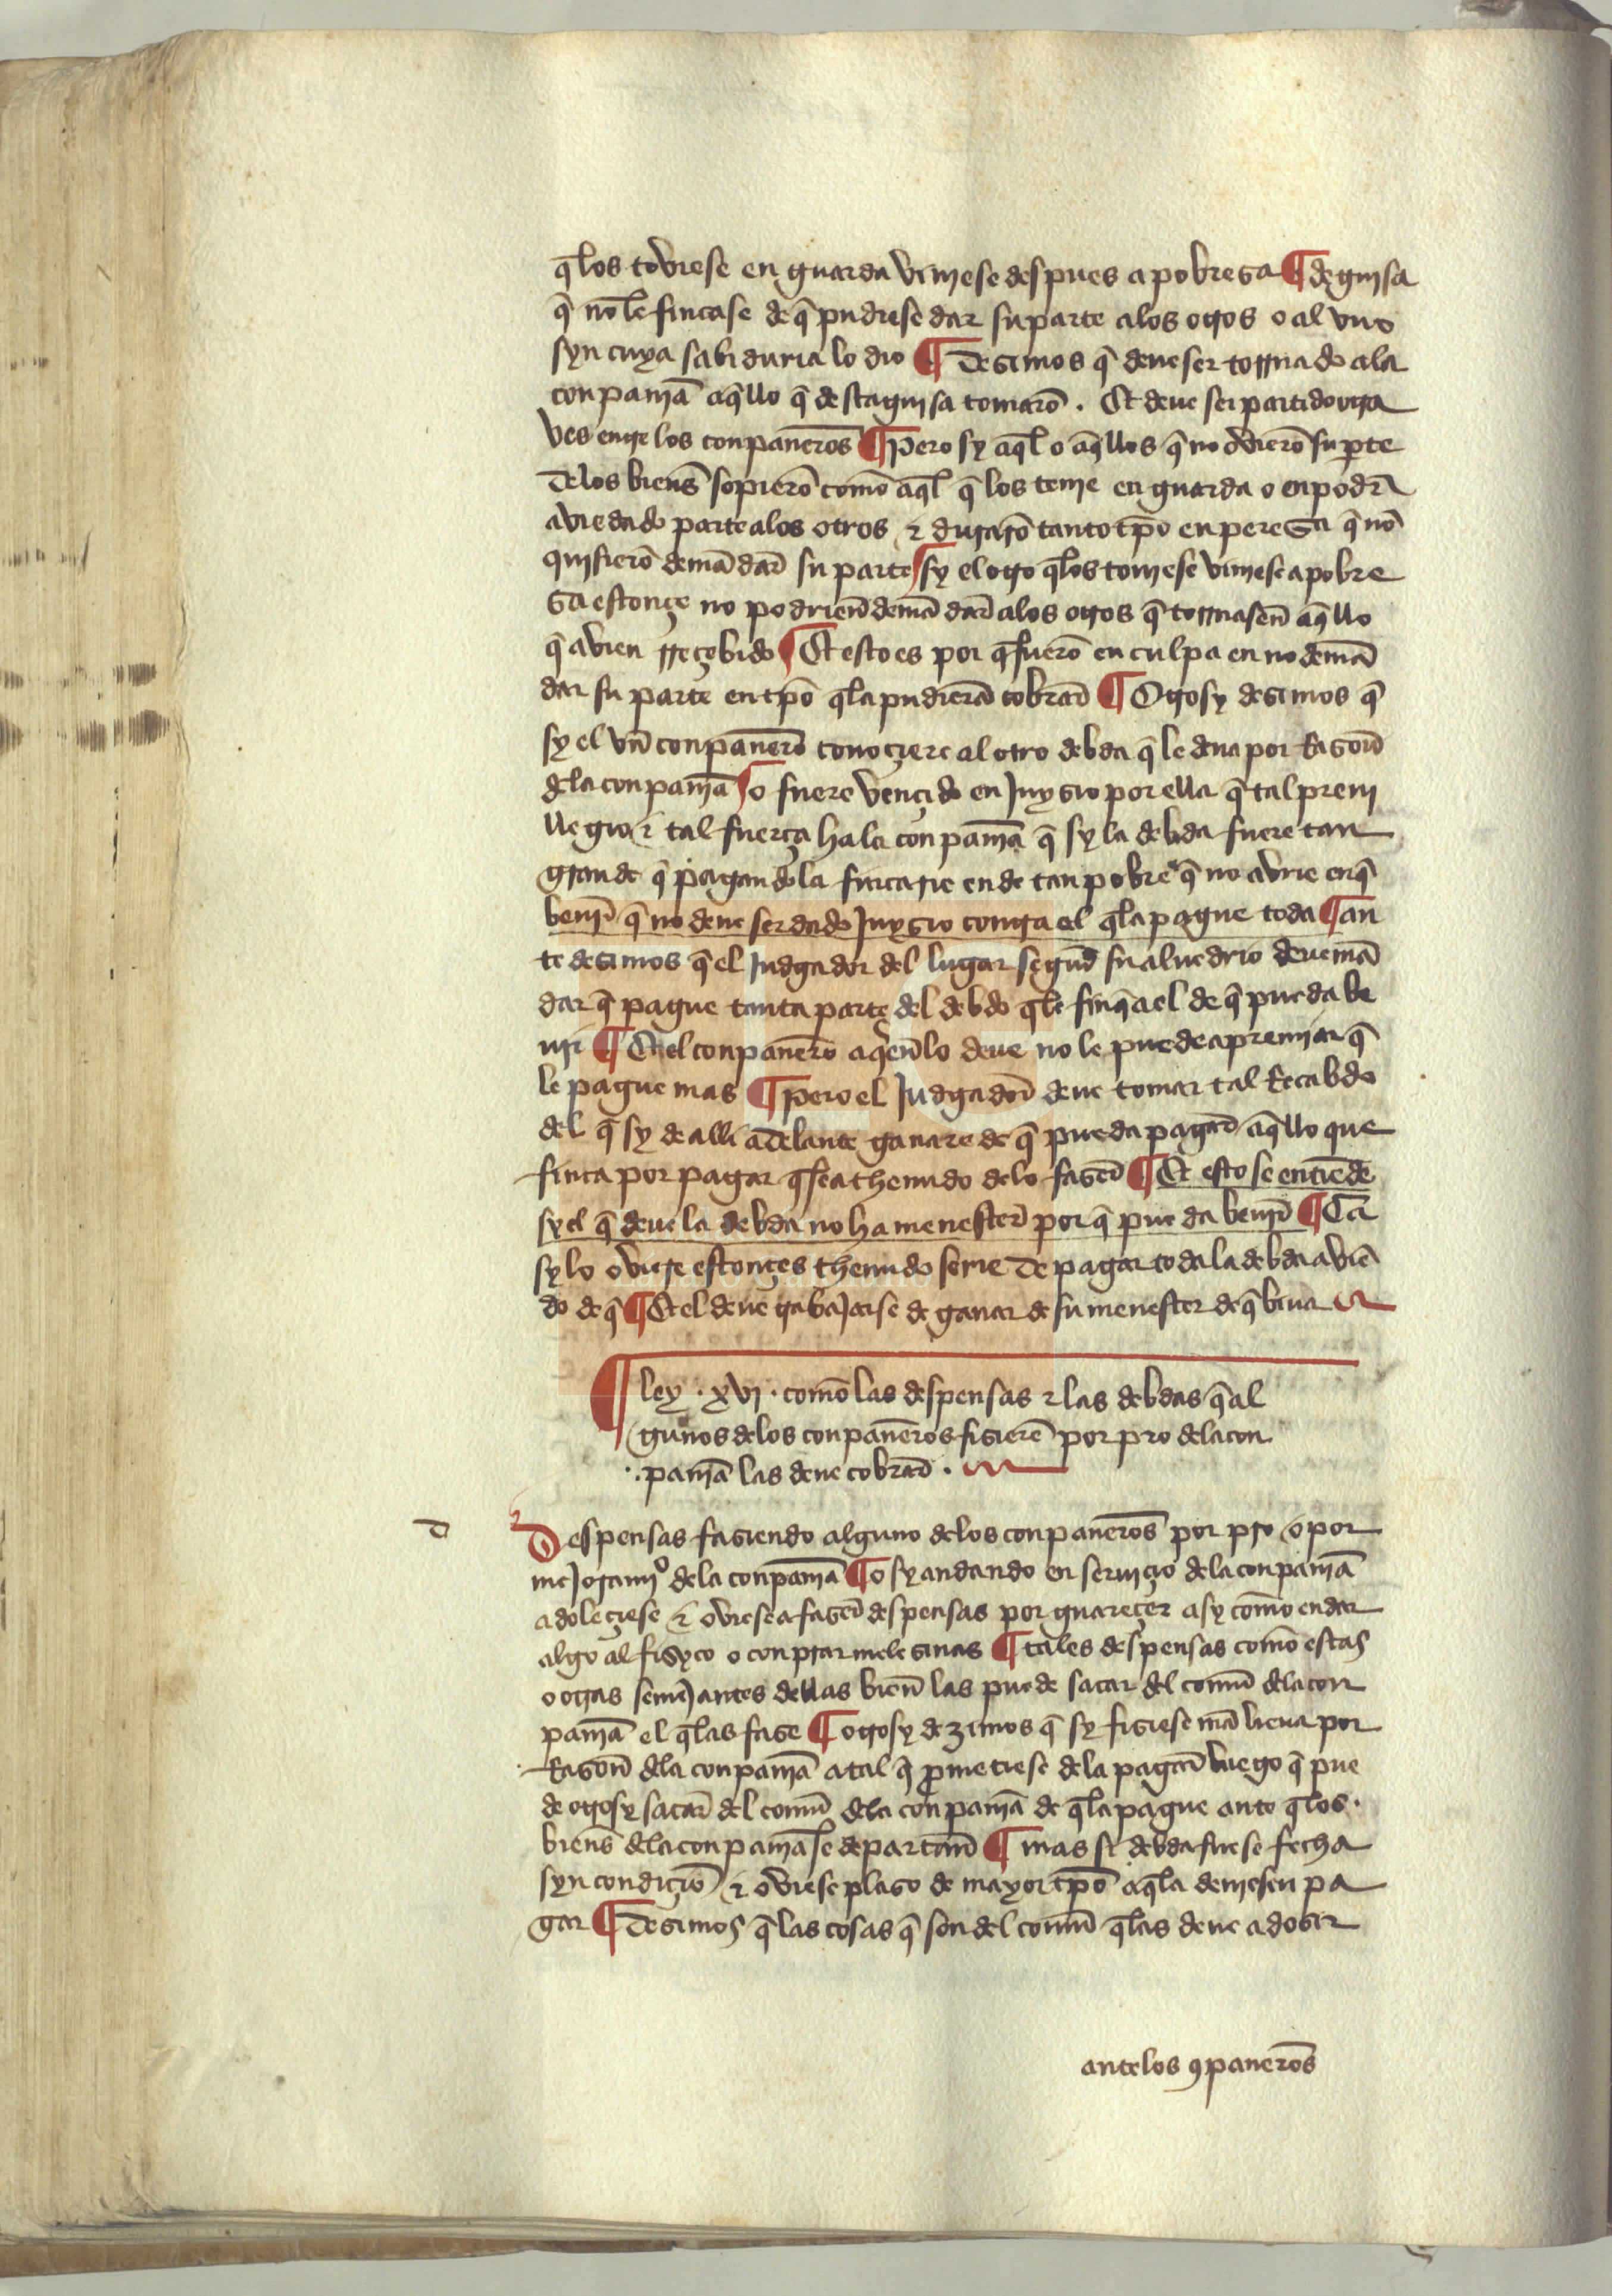 q̃los toviese en guarda viniese despues a pobresa ¶ de guisa
q̃ nõ le fincase de q̃ pudiese dar su parte alos otros o al vno
syn cuya sabiduria lo dio ¶ Desimos q̃ deue ser tornado ala
conpanĩa aq̃llo q̃ desta guisa tomarõ . Et deue ser partido otra
ves entre los conpaneros ¶ Pero sy aq̃l o aq̃llos q̃ no ovierõ su pte
delos bienes̃ sopierõ comõ aq̃l q̃ los tenie en guarda o en podr̃
avie dado parte alos otros ⁊ durarõ tanto tpõ en peresa q̃ nõ
quisierõ demãdar̃ su parte ¶ sy el otro q̃los toviese viniese a pobre
sa estonçe no podrien̄ demãdar̃ alos otros q̃ tornasen̄ aq̃llo
q̃ avien rreçebido ¶ Et esto es por q̃ fuerõ en culpa en no demã
dar su parte en tpõ q̃la pudierã cobrar̃ ¶ Otrosy desimos q̃
sy el vn̄ conpanero conoçiere al otro debda q̃ le deua por Rason̄
dela conpanĩa ¶ o fuere vençido en Juysio por ella q̃ tal preui
llegio ⁊ tal fuerça ha la conpanĩa q̃ sy la debda fuere tan
grande q̃ pagandola fincarie ende tan pobre q̃ no avrie en q̃
beuir̃ q̃ no deue ser dado Juysio contra el q̃la pague toda ¶ an
te desimos q̃ el Judgador del lugar segud̃ su aluedrio deue mã
dar q̃ pague tanta parte del debdo q̃le finq̃ a el de q̃ pueda be
uir ¶ Et el conpanero a q̃en̄ lo deue no le puede apremiar q̃
le pague mas ¶ Pero el Judgador̃ deue tomar tal Recabdo
del q̃ sy de alli adelante ganare de q̃ pueda pagar̃ aq̃llo que
finca por pagar q̃ sea thenudo delo faser̃ ¶ Et esto se entiẽde
sy el q̃ deue la debda no ha menester̃ por q̃ pueda beuir̃ ¶ Ca
sy lo oviere estonçes thenudo serie de pagar toda la debda aviẽ
do de q̃ ¶ Et el deue trabaJarse de ganar de su menester de q̃ biua
¶ ley . xvj . comõ las despensas ⁊ las debdas q̃ al
gunos delos conpaneros fisierẽ por pro dela con
panĩa las deue cobrar̃ .
d
Despensas fasiendo alguno delos conpaneros por pro o por
meJoramj̃º dela conpanĩa ¶ o sy andando en seruiçio dela conpanĩa
adoleçiese ⁊ oviese a faser̃ despensas por guareçer asy comõ en dar
algo al fisyco o conprar melesinas ¶ tales despensas comõ estas
o otras semeJantes dellas bien̄ las puede sacar del comũ dela con
panĩa el q̃las fase ¶ otrosy dezimos q̃ sy fisiese mãlieua por
Rason̄ dela conpanĩa atal q̃ prometiese dela pagar̃ luego q̃ pue
de otrosy sacar̃ del comũ dela conpanĩa de q̃la pague ante q̃los
bienes̃ dela conpanĩa se departan̄ ¶ mas si debda fuese fecha
syn condiçiõ ⁊ oviese plaso de mayor tpõ a q̃la deuiesen pa
gar ¶ Desimos q̃ las cosas q̃ son del comũ q̃las deue adosir
antelos ꝯpaneros